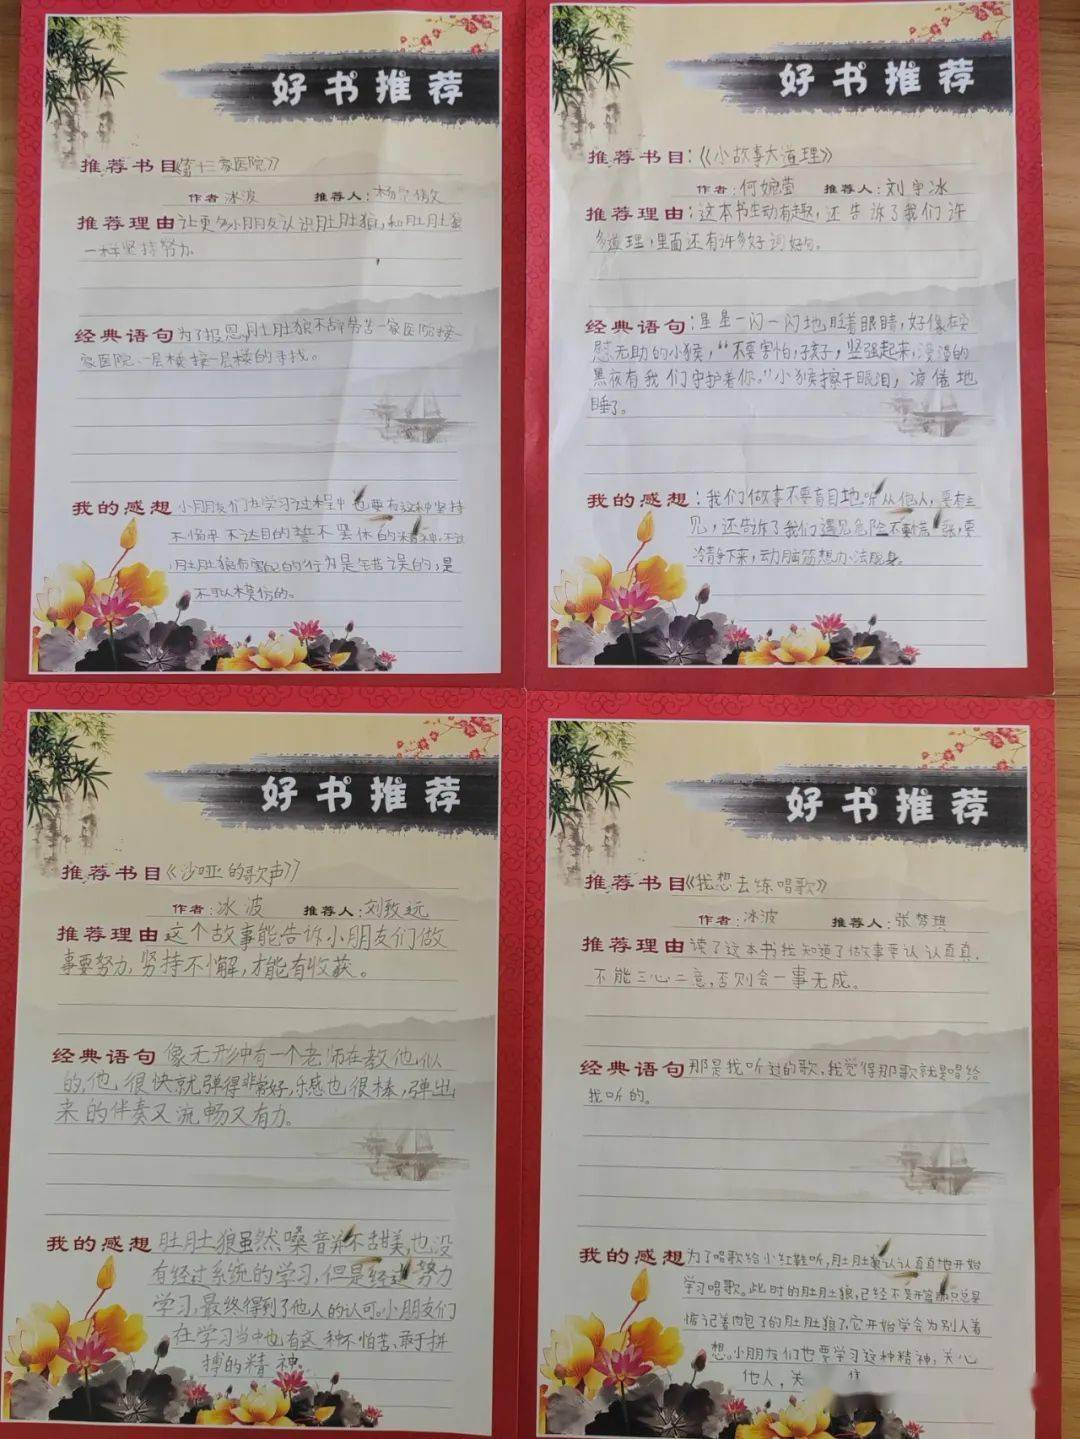 好书推荐
推荐书目《第十三家医院》
作者：冰波 推荐人：杨
推荐理由 让更多小朋友认识肚肚狼,和肚肚狼
一样坚持努力
经典语句 为了报恩,肚肚狼不辞劳苦一家医院接一
家医院、一层楼接一层楼的寻找。
我的感想 小朋友们在学习过程中也要有这种坚持
不达目的誓不罢休的精神,不过
肚肚狼 的行为是错误的,是
不可以模仿的。
好书推荐
推荐书目:《小故事大道理》
作者:何婉莹 推荐人:刘宇冰
推荐理由:这本书生动有趣,还告诉了我们许
多道理,里面还有许多好词好句。
经典语句:星星一闪一闪地眨着眼睛,好像在安
慰无助的小猴,“不要害怕,孩子,坚强起来,漫漫的
黑夜有我们守护着你。”小猴擦干眼泪,疲倦地
睡了。
我的感想:我们做事不要盲目地听从他人,要有主
见,还告诉了我们遇见危险不要慌 ,要
冷静下来,动脑筋想办法脱身。
好书推荐
推荐书目《沙哑的歌声》
作者:冰波 推荐人:刘致远
推荐理由 这个故事能告诉小朋友们做
事要努力,坚持不懈,才能有收获。
经典语句 像无形中有一个老师在教他似
的,他很快就弹得非常好,乐感也很棒,弹出
来的伴奏又流畅又有力。
我的感想 肚肚狼虽然嗓音并不甜美,也没
有经过系统的学习,但是经过努力
学习,最终得到了他人的认可。小朋友们
在学习当中也有这种不怕苦、敢于拼
搏的精神
好书推荐
推荐书目《我想去练唱歌》
作者:冰波 推荐人:张梦琪
推荐理由 读了这本书我知道了做事要认认真真,
不能三心二意,否则会一事无成。
经典语句 那是我听过的歌,我觉得那歌就是唱给
我听的。
我的感想 为了唱歌给小红鞋听,肚肚狼认认真真地开始
学习唱歌。此时的肚肚狼,已经不是 只总是
惦记着 饱了的肚肚狼了,它开始学会为别人着
想。小朋友们也要学习这种精神,关心
他人,关